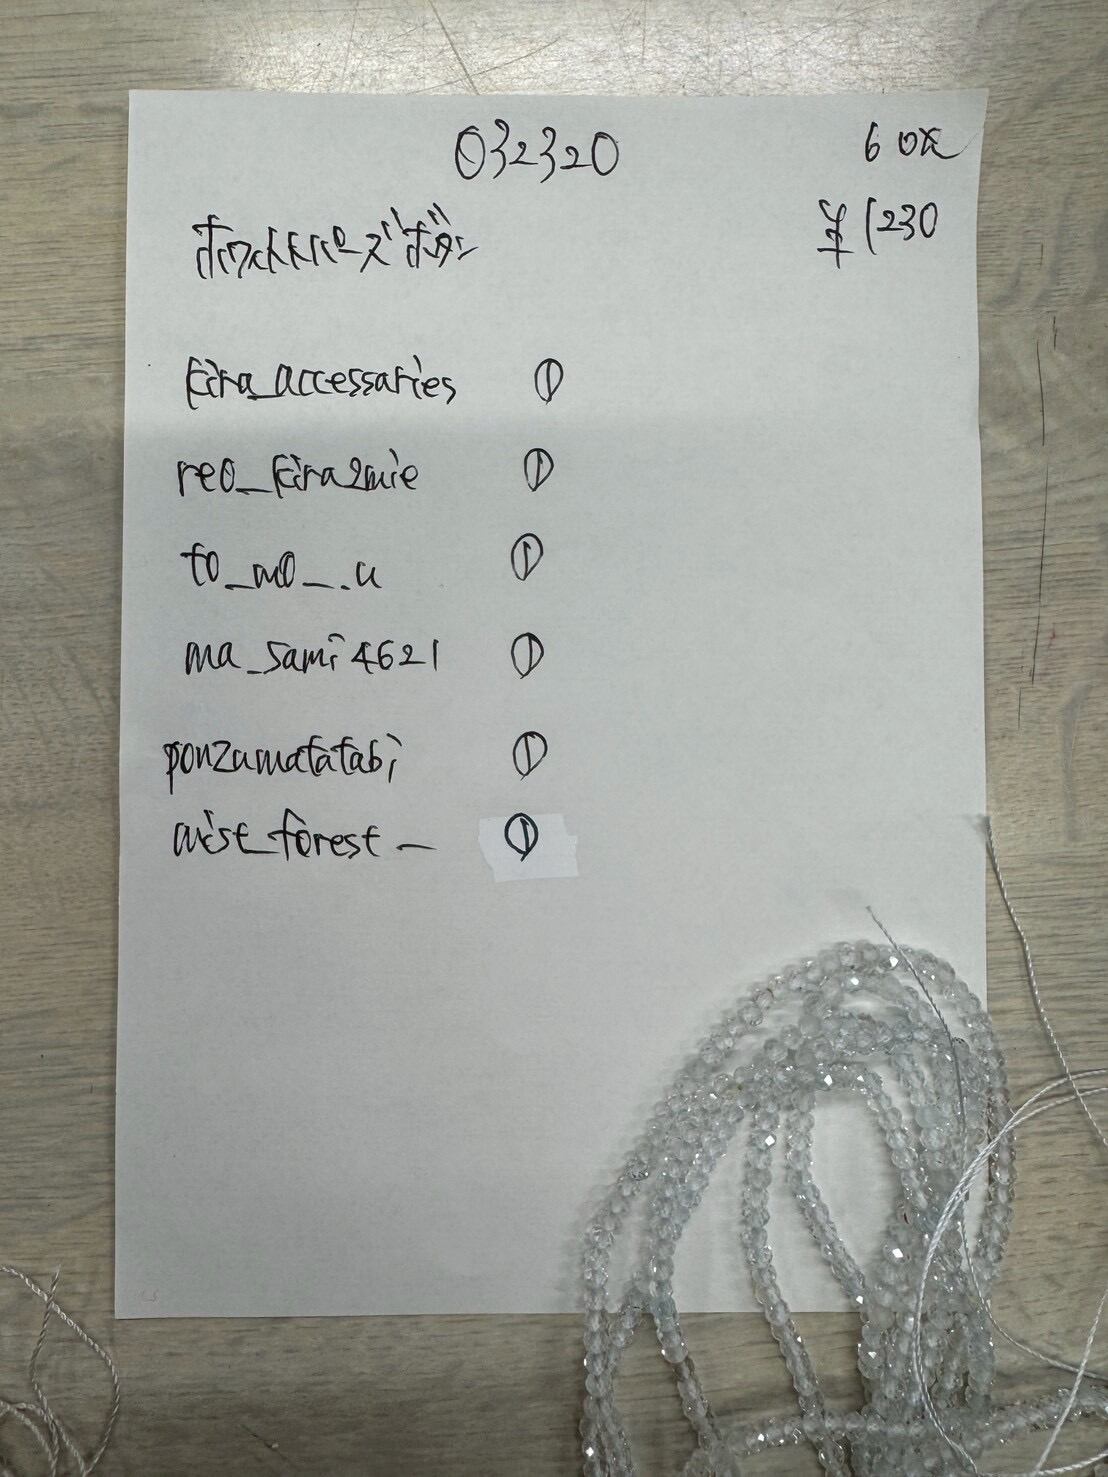 032320
6 0点
¥1230
ホワイトトパーズ ボタン
kira_accessaries ①
reo_kira2mie ①
to_mo__.u ①
ma_sami4621 ①
ponzumatatabi ①
mist_forest_ ①